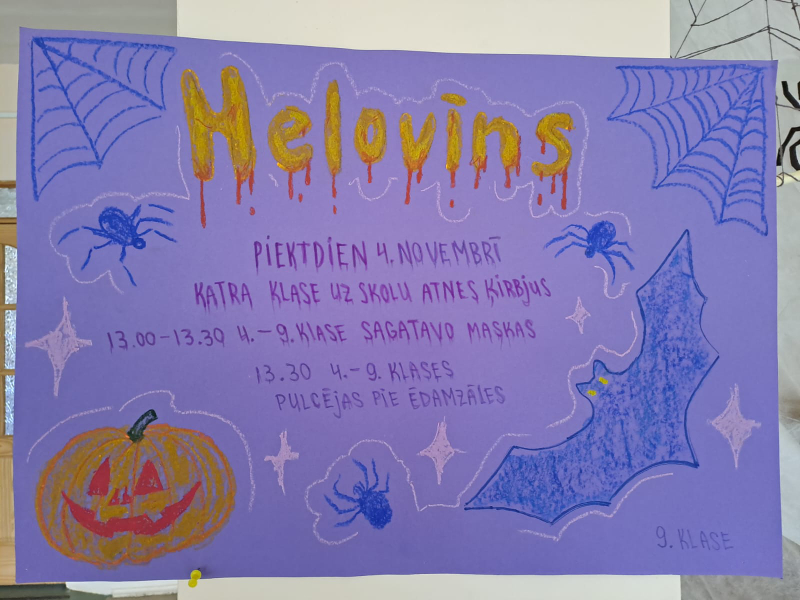 Helovīns
PIEKTDIEN 4. NOVEMBRĪ
KATRA KLASE UZ SKOLU ATNES ĶIRBJUS
13.00-13.30 4.-9. KLASE SAGATAVO MASKAS
13.30 4.-9. KLASES
PULCĒJAS PIE ĒDAMZĀLES
9. KLASE